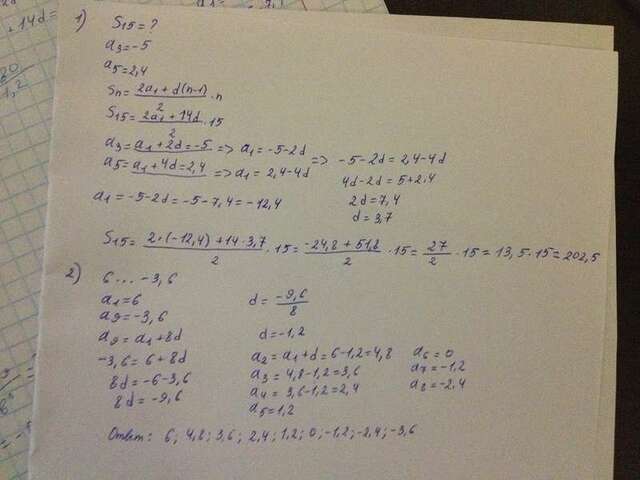 1) S15 = ?
a3 = -5
a5 = 2,4
Sn = (2a1 + d(n-1))/2 · n
S15 = (2a1 + 14d)/2 · 15
a3 = a1 + 2d = -5 => a1 = -5 - 2d => -5 - 2d = 2,4 - 4d
a5 = a1 + 4d = 2,4 => a1 = 2,4 - 4d
4d - 2d = 5 + 2,4
2d = 7,4
d = 3,7
a1 = -5 - 2d = -5 - 7,4 = -12,4
S15 = (2·(-12,4) + 14·3,7)/2 · 15 = (-24,8 + 51,8)/2 · 15 = 27/2 · 15 = 13,5 · 15 = 202,5
2) 6 ... -3,6
a1 = 6
a9 = -3,6
a9 = a1 + 8d
-3,6 = 6 + 8d
8d = -6-3,6
8d = -9,6
d = -9,6/8
d = -1,2
a2 = a1 + d = 6 - 1,2 = 4,8
a3 = 4,8 - 1,2 = 3,6
a4 = 3,6 - 1,2 = 2,4
a5 = 1,2
a6 = 0
a7 = -1,2
a8 = -2,4
Ответ: 6; 4,8; 3,6; 2,4; 1,2; 0; -1,2; -2,4; -3,6